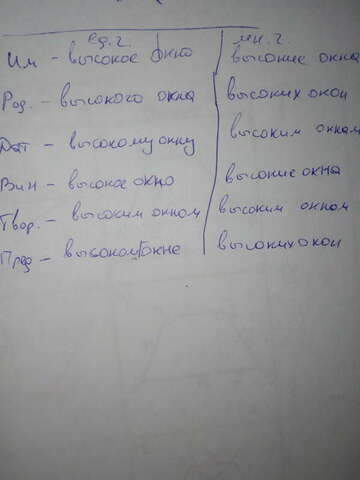 ед.ч. мн.ч.
Им - высокое окно высокие окна
Род. - высокого окна высоких окон
Дат - высокому окну высоким окнам
Вин - высокое окно высокие окна
Твор. - высоким окном высоким окном
Пред - высоком окне высоких окон